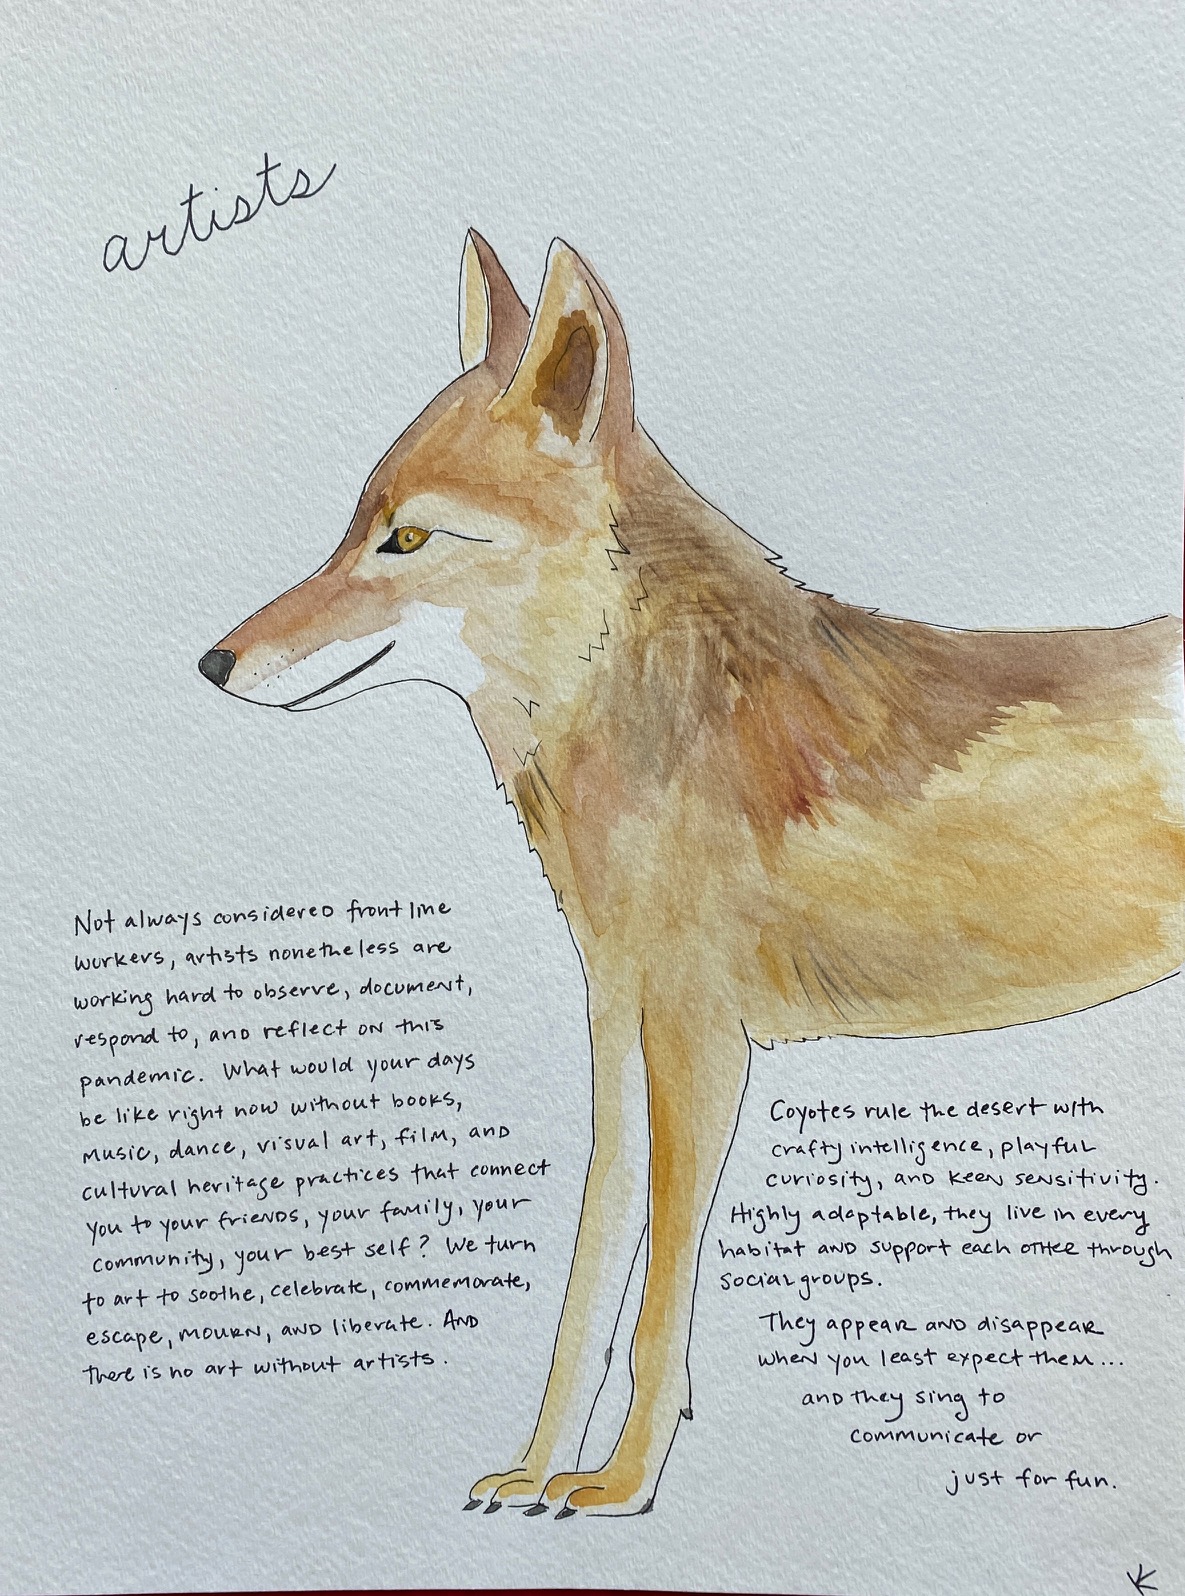 artists
Not always considered front line
workers, artists nonetheless are
working hard to observe, document,
respond to, and reflect on this
pandemic. What would your days
be like right now without books,
music, dance, visual art, film, and
cultural heritage practices that connect
you to your friends, your family, your
community, your best self? We turn
to art to soothe, celebrate, commemorate,
escape, mourn, and liberate. And
there is no art without artists.
Coyotes rule the desert with
crafty intelligence, playful
curiosity, and keen sensitivity.
Highly adaptable, they live in every
habitat and support each other through
social groups.
They appear and disappear
when you least expect them...
and they sing to
communicate or
just for fun.
VK